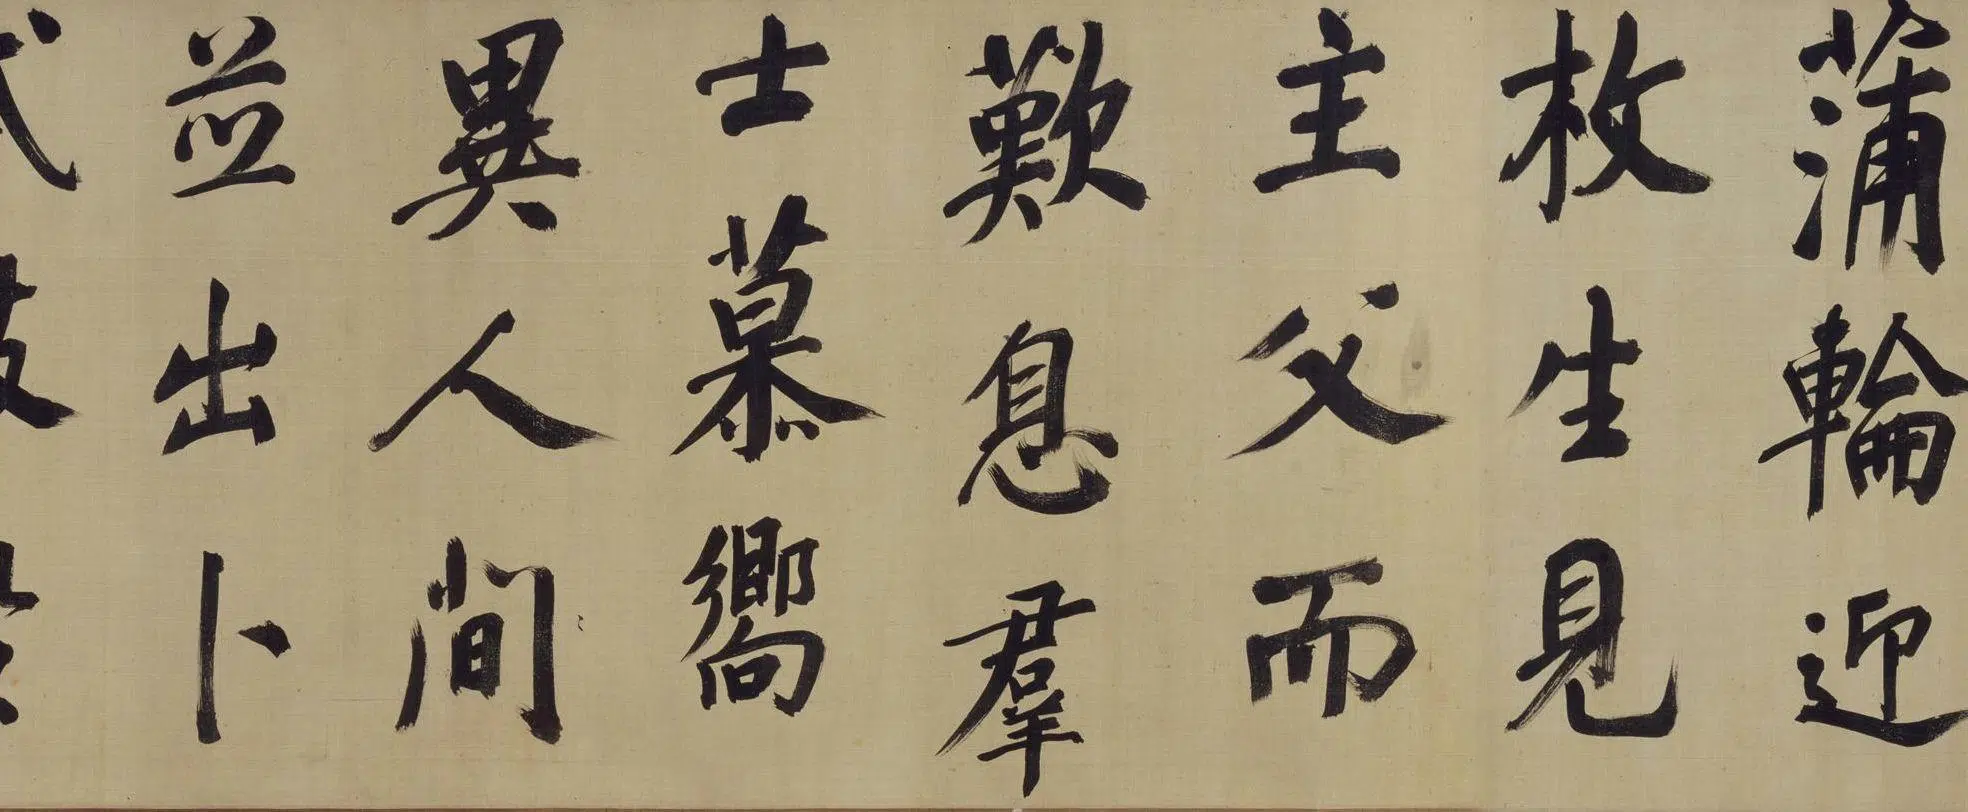 蒲輪迎
枚生見
主父而
歎息羣
士慕嚮
異人間
並出卜